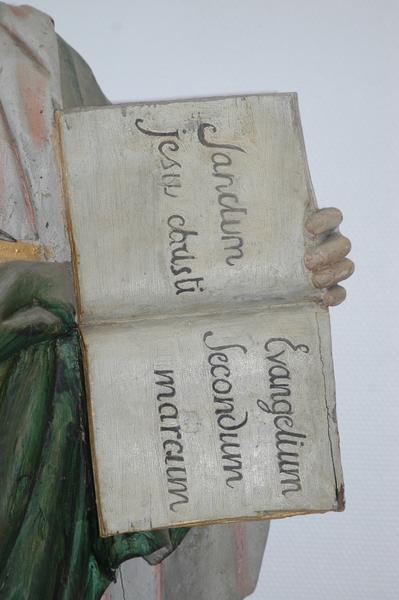 Sandum
Jesu christi
Evangelium
Secondum
marcum